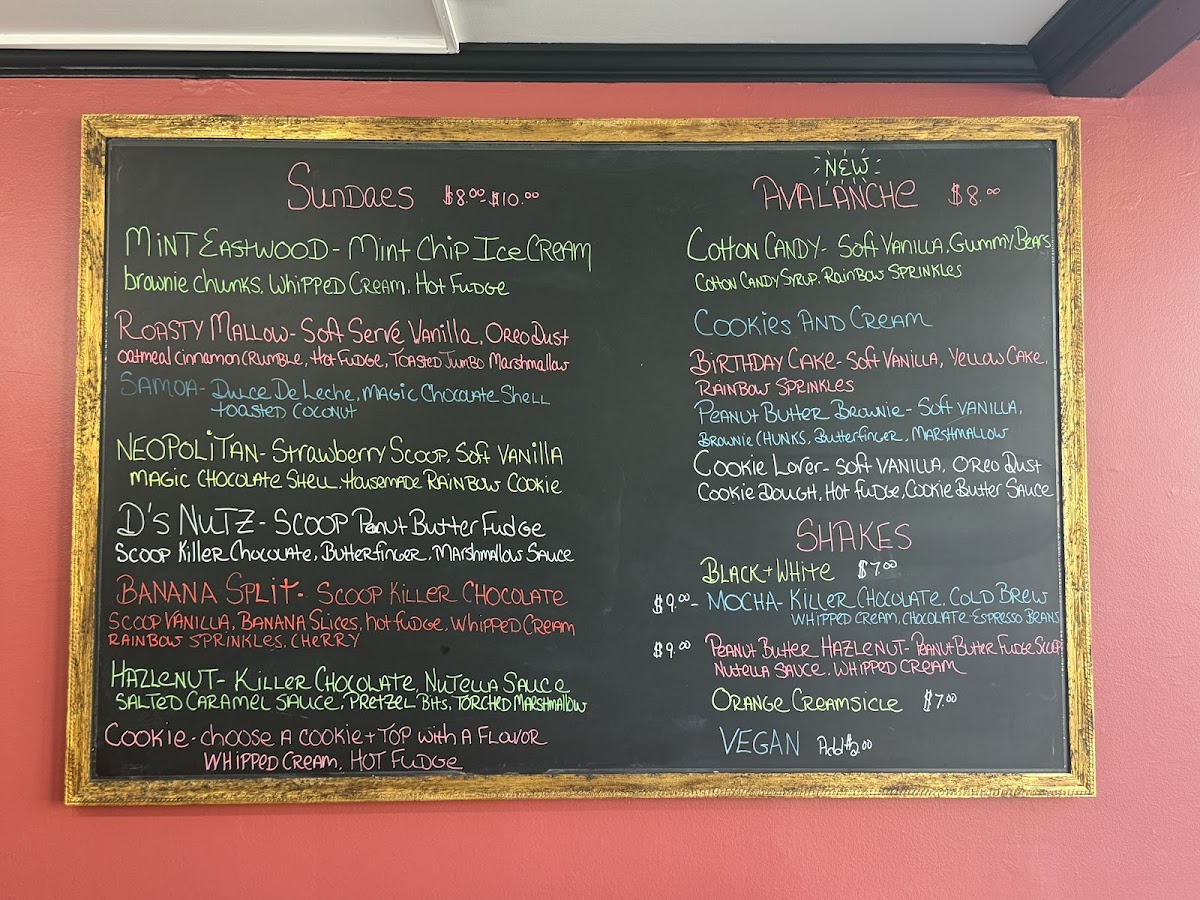 Sundaes $8.00-$10.00
Mint Eastwood - Mint Chip Ice Cream
brownie chunks, Whipped Cream, Hot Fudge
Roasty Mallow - Soft Serve Vanilla, Oreo Dust
Oatmeal Cinnamon Crumble, Hot Fudge, Toasted Jumbo Marshmallow
Samoa - Dulce De Leche, Magic Chocolate Shell
toasted coconut
Neopolitan - Strawberry Scoop, Soft Vanilla
Magic Chocolate Shell, Housemade Rainbow Cookie
D's Nutz - Scoop Peanut Butter Fudge
Scoop Killer Chocolate, Butterfinger, Marshmallow Sauce
Banana Split - Scoop Killer Chocolate
Scoop Vanilla, Banana Slices, hot fudge, Whipped Cream
Rainbow Sprinkles, Cherry
Hazlenut - Killer Chocolate, Nutella Sauce
Salted Caramel Sauce, Pretzel Bits, Torched Marshmallow
Cookie - choose a cookie + top with a flavor
Whipped Cream, Hot Fudge
New
Avalanche $8.00
Cotton Candy - Soft Vanilla, Gummy Bears
Cotton Candy Syrup, Rainbow Sprinkles
Cookies And Cream
Birthday Cake - Soft Vanilla, Yellow Cake,
Rainbow Sprinkles
Peanut Butter Brownie - Soft Vanilla,
Brownie Chunks, Butterfinger, Marshmallow
Cookie Lover - Soft Vanilla, Oreo Dust
Cookie Dough, Hot Fudge, Cookie Butter Sauce
Shakes
Black + White $7.00
$9.00 - Mocha - Killer Chocolate, Cold Brew
Whipped Cream, Chocolate-Espresso Beans
$9.00 Peanut Butter Hazlenut - Peanut Butter Fudge Scoop
Nutella Sauce, Whipped Cream
Orange Creamsicle $7.00
Vegan Add $2.00